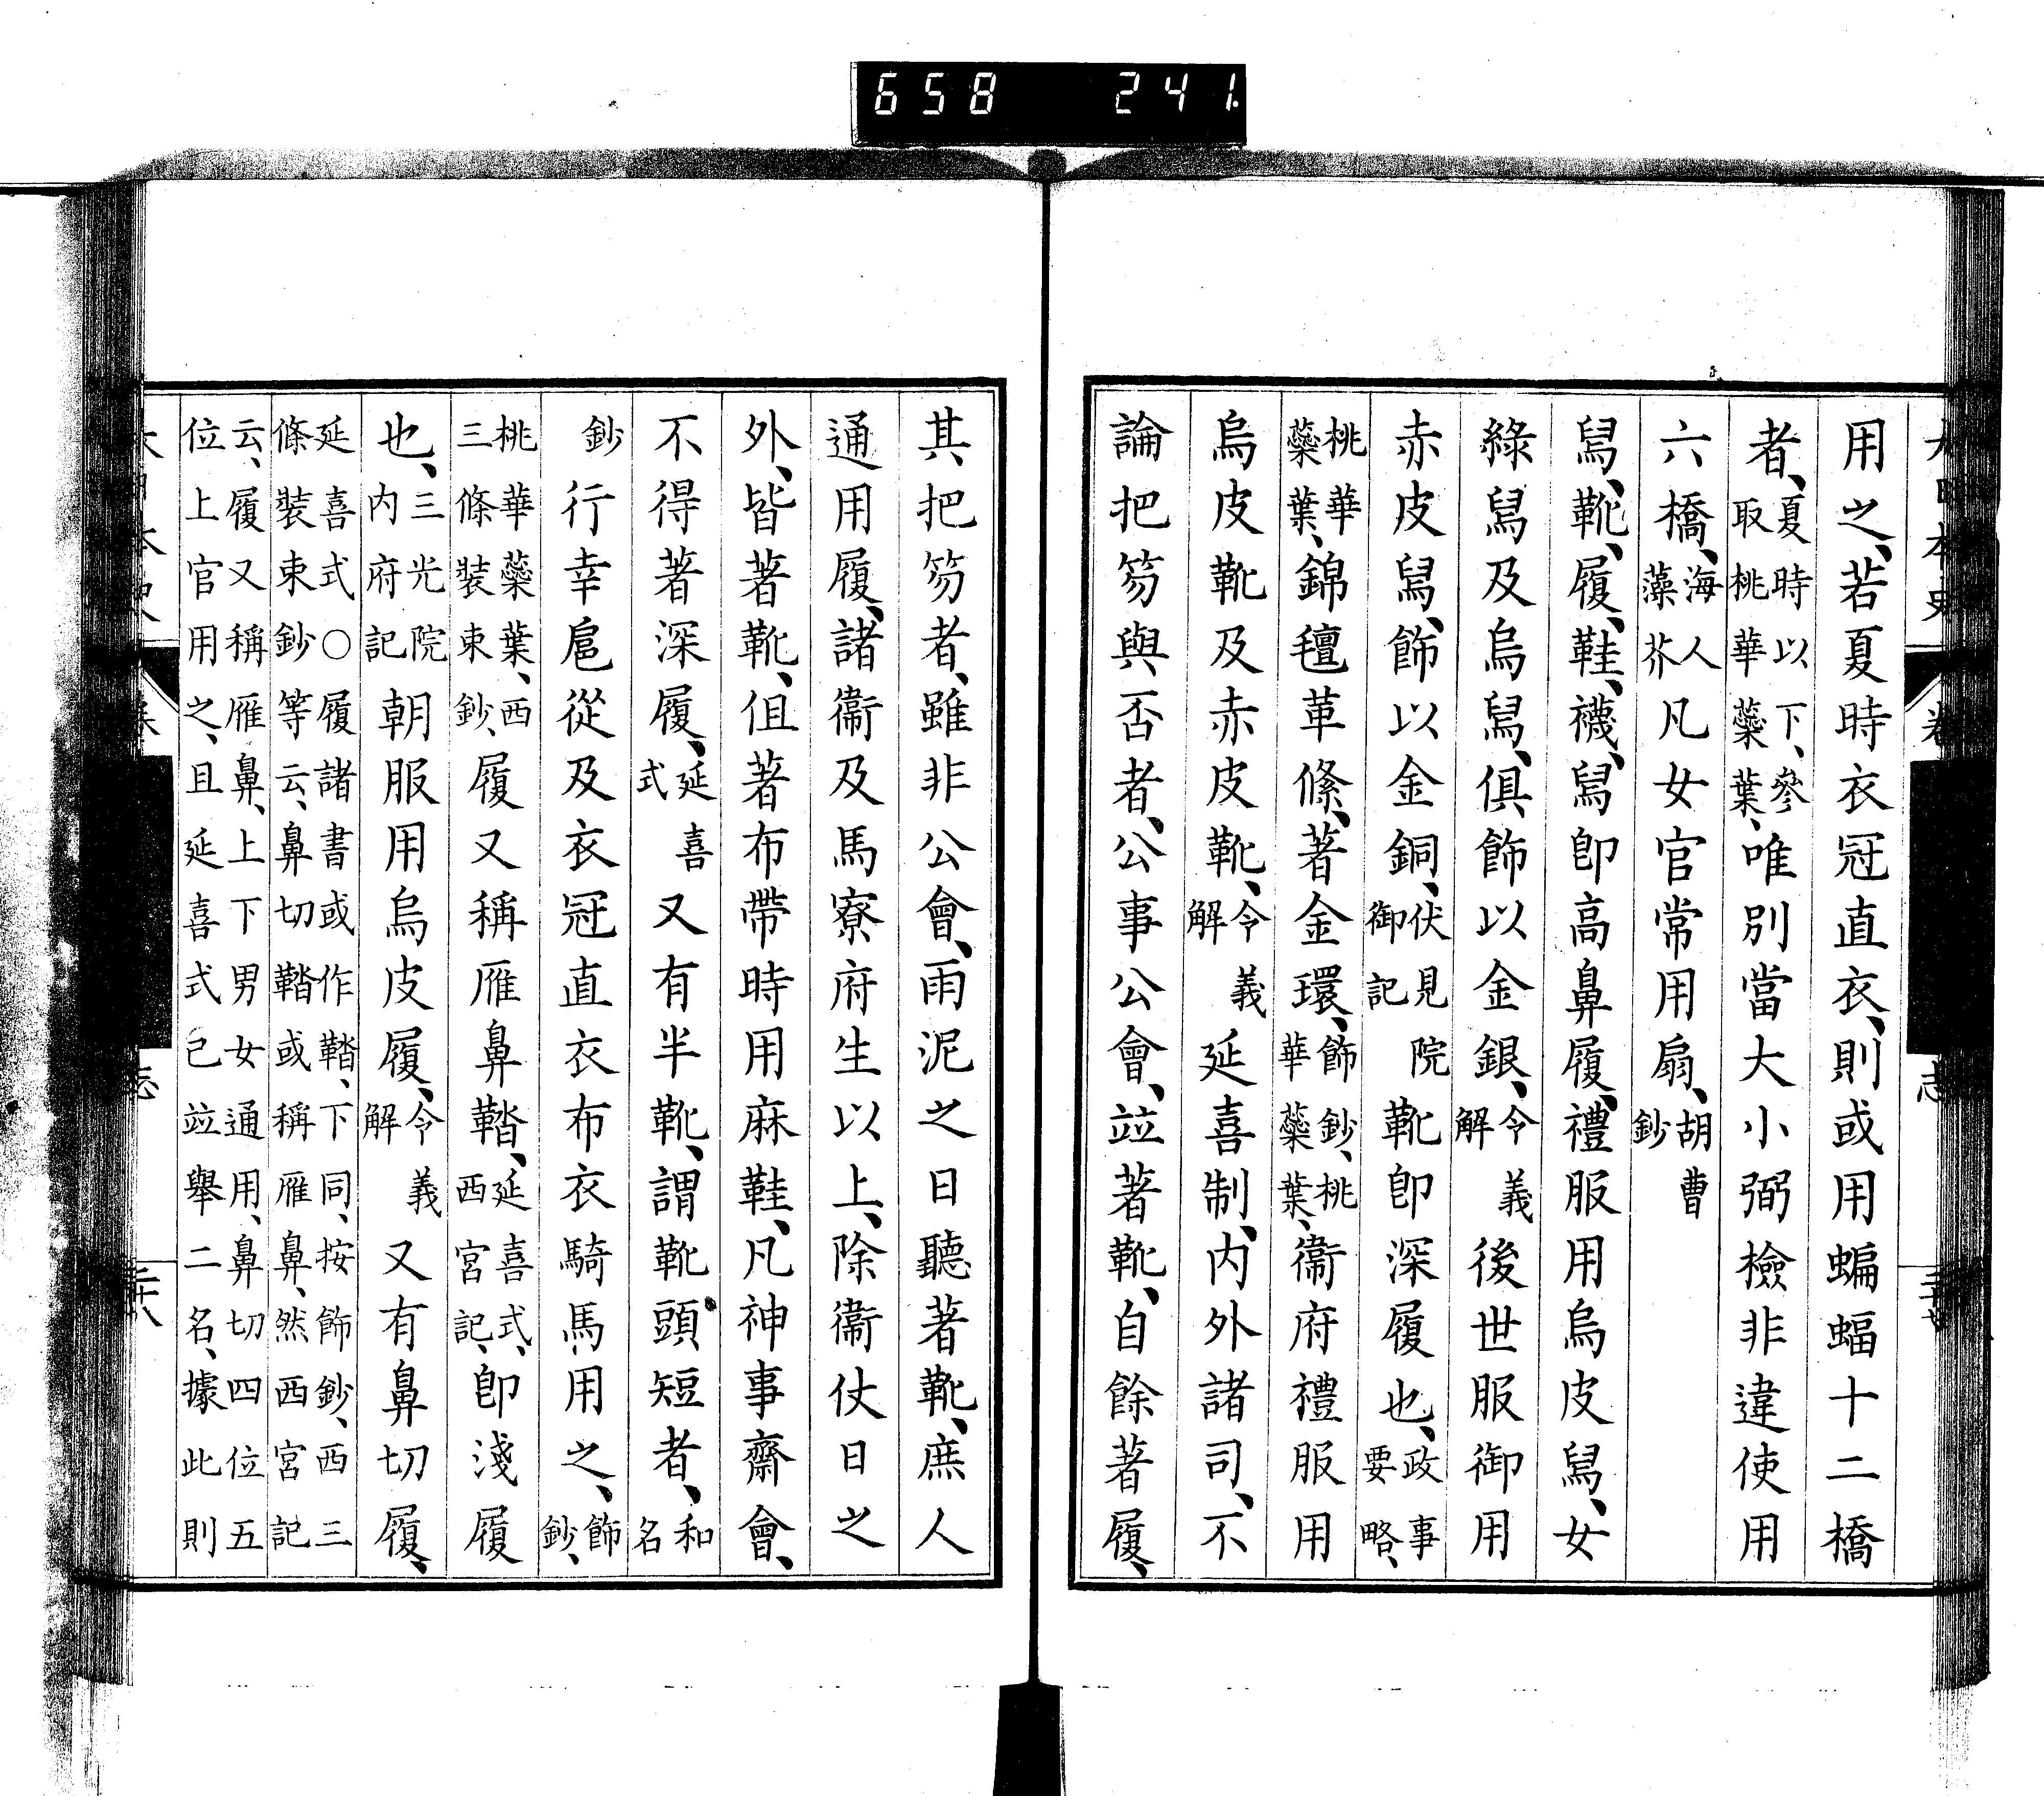 大日本史
志
用之、若夏時衣冠直衣、則或用蝙蝠十二橋
者、夏時以下、參取桃華蘂葉、唯別當大小弼檢非違使用
六橋、海人藻芥凡女官常用扇、胡曹鈔
舃、靴、履、鞋、襪、舃卽高鼻履、禮服用烏皮舃、女
綠舃及烏舃、俱飾以金銀、令義解後世服御用
赤皮舃、飾以金銅、伏見院御記靴卽深履也、政事要略、
桃華蘂葉、錦氊革絛、著金環、飾鈔、桃華蘂葉、衞府禮服用
烏皮靴及赤皮靴、令義解延喜制、內外諸司、不
論把笏與否者、公事公會、竝著靴、自餘著履、
其把笏者、雖非公會、雨泥之日聽著靴、庶人
通用履、諸衞及馬寮府生以上、除衞仗日之
外、皆著靴、但著布帶時用麻鞋、凡神事齋會、
不得著深履、延喜式又有半靴、謂靴頭短者、和名
鈔行幸扈從及衣冠直衣布衣騎馬用之、飾鈔、
桃華蘂葉、西三條裝束鈔、履又稱雁鼻鞜、延喜式、西宮記、卽淺履
也、三光院內府記朝服用烏皮履、令義解又有鼻切履、
延喜式○履諸書或作鞜、下同、按飾鈔、西三
條裝束鈔等云、鼻切鞜或稱雁鼻、然西宮記
云、履又稱雁鼻、上下男女通用、鼻切四位五
位上官用之、且延喜式已竝舉二名、據此則
志